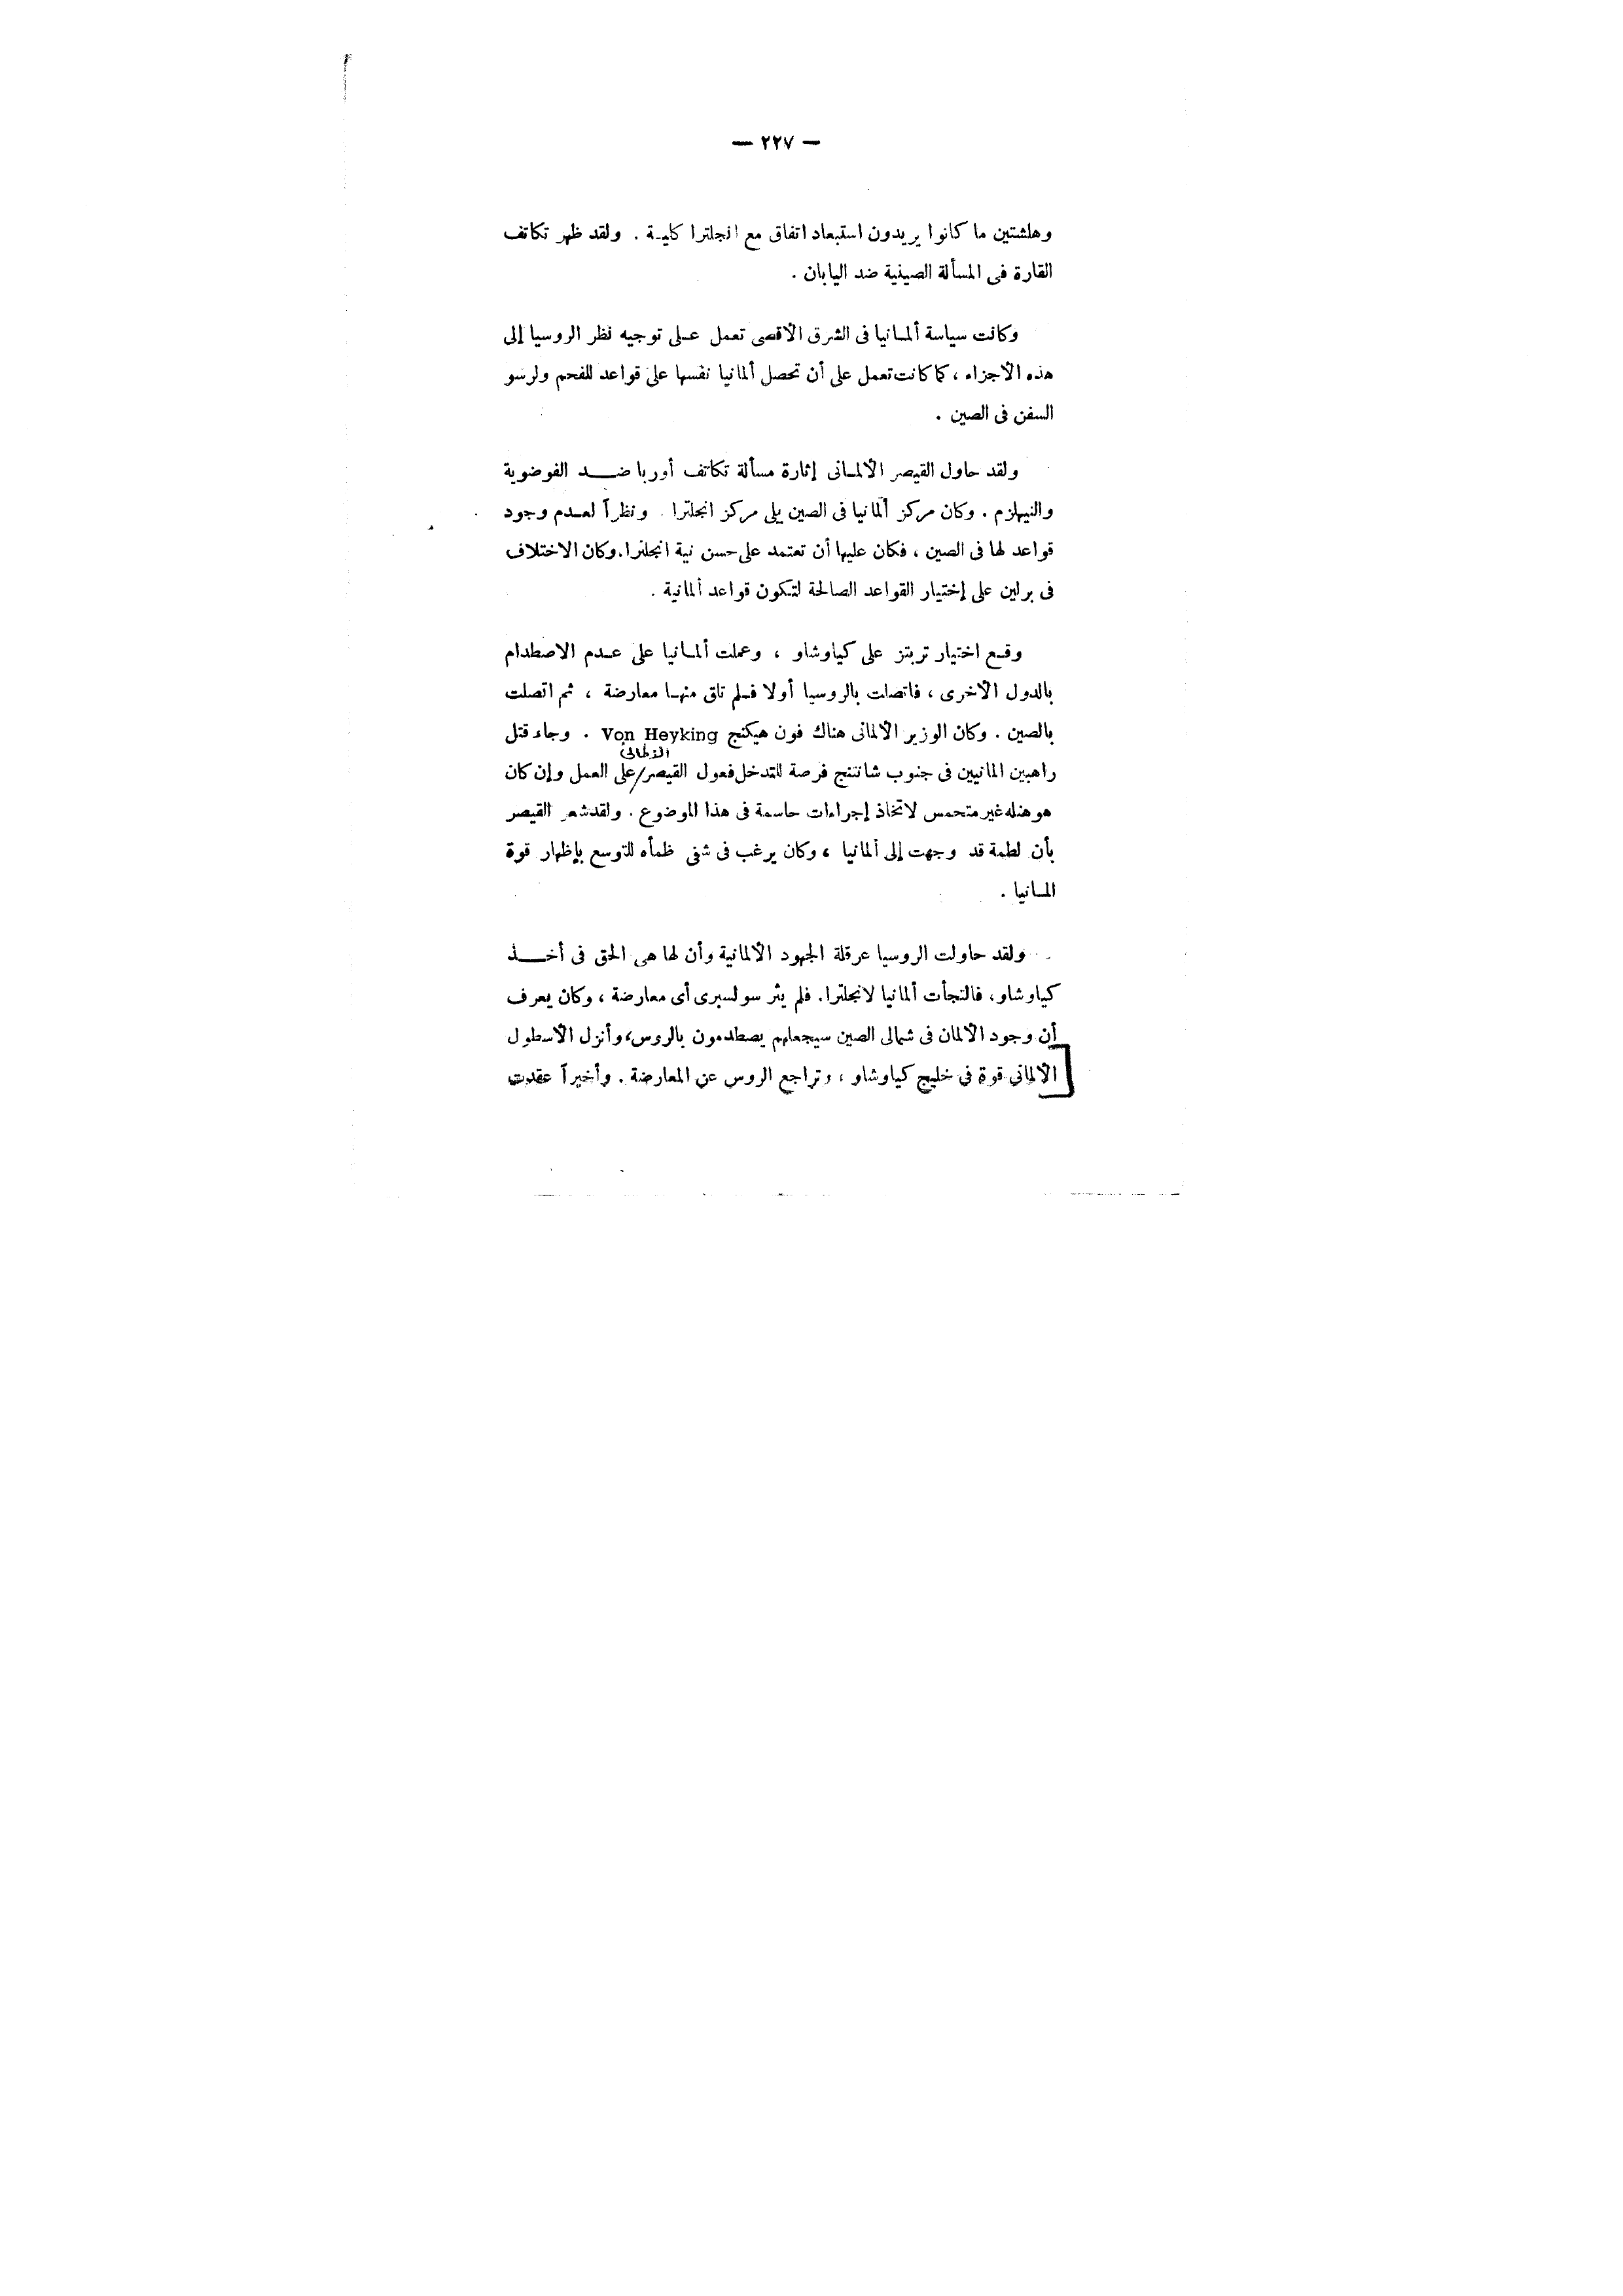 — ٢٢٧ —
وهلشتين ما كانوا يريدون استبعاد اتفاق مع انجلترا كلية . ولقد ظهر تكاتف
القارة فى المسألة الصينية ضد اليابان .
وكانت سياسة ألمانيا فى الشرق الأقصى تعمل على توجيه نظر الروسيا إلى
هذه الأجزاء ، كما كانت تعمل على أن تحصل ألمانيا نفسها على قواعد للفحم ولرسو
السفن فى الصين .
ولقد حاول القيصر الألمانى إثارة مسألة تكاتف أوربا ضد الفوضوية
والنيهلزم . وكان مركز ألمانيا فى الصين يلى مركز انجلترا . ونظراً لعدم وجود
قواعد لها فى الصين ، فكان عليها أن تعتمد على حسن نية انجلترا . وكان الاختلاف
فى برلين على إختيار القواعد الصالحة لتكون قواعد ألمانية .
وقع اختيار تربتز على كياوشاو ، وعملت ألمانيا على عدم الاصطدام
بالدول الأخرى ، فاتصلت بالروسيا أولا فلم تلق منها معارضة ، ثم اتصلت
بالصين . وكان الوزير الألمانى هناك فون هيكنج Von Heyking . وجاء قتل
راهبين المانيين فى جنوب شانتنج فرصة للتدخل فعول القيصر / الألمانى على العمل وإن كان
هوهنله غير متحمس لاتخاذ إجراءات حاسمة فى هذا الموضوع . ولقد شعر القيصر
بأن لطمة قد وجهت إلى ألمانيا ، وكان يرغب فى شفى ظمأه للتوسع بإظهار قوة
المانيا .
ولقد حاولت الروسيا عرقلة الجهود الألمانية وأن لها هى الحق فى أخذ
كياوشاو ، فالتجأت ألمانيا لانجلترا . فلم يثر سولسبرى أى معارضة ، وكان يعرف
أن وجود الألمان فى شمالى الصين سيجعلهم يصطدمون بالروس ، وأنزل الأسطول
الألمانى قوة فى خليج كياوشاو ، وتراجع الروس عن المعارضة . وأخيراً عقدت